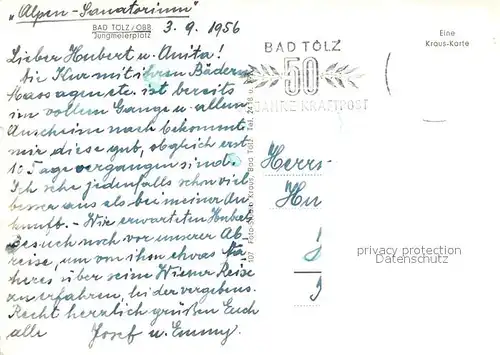 "Alpen-Sanatorium"
BAD TÖLZ/OBB
Jungmeierplatz
3.9.1956
Eine
Kraus-Karte
BAD TÖLZ
50
JAHRE KRAFTPOST
Lieber Hubert u. Anita!
Die Kur mit ihren Bädern
Massagen etc. ist bereits
im vollem Gange u. allem
Anscheine nach bekommt
mir diese gut, obgleich erst
10 Tage vergangen sind.
Ich sehe jedenfalls schon viel
besser aus als bei meiner An
kunft. - Wir erwarteten Hubert
Besuch noch vor unserer Ab
reise, um von ihm etwas Nä
heres über seine Wiener Reise
zu erfahren, leider vergebens.
Recht herzlich grüßen Euch
alle Josef u. Emmy.
107 Foto Kraus, Bad Tölz, Tel.
Herrn
Hu
privacy protection
Datenschutz